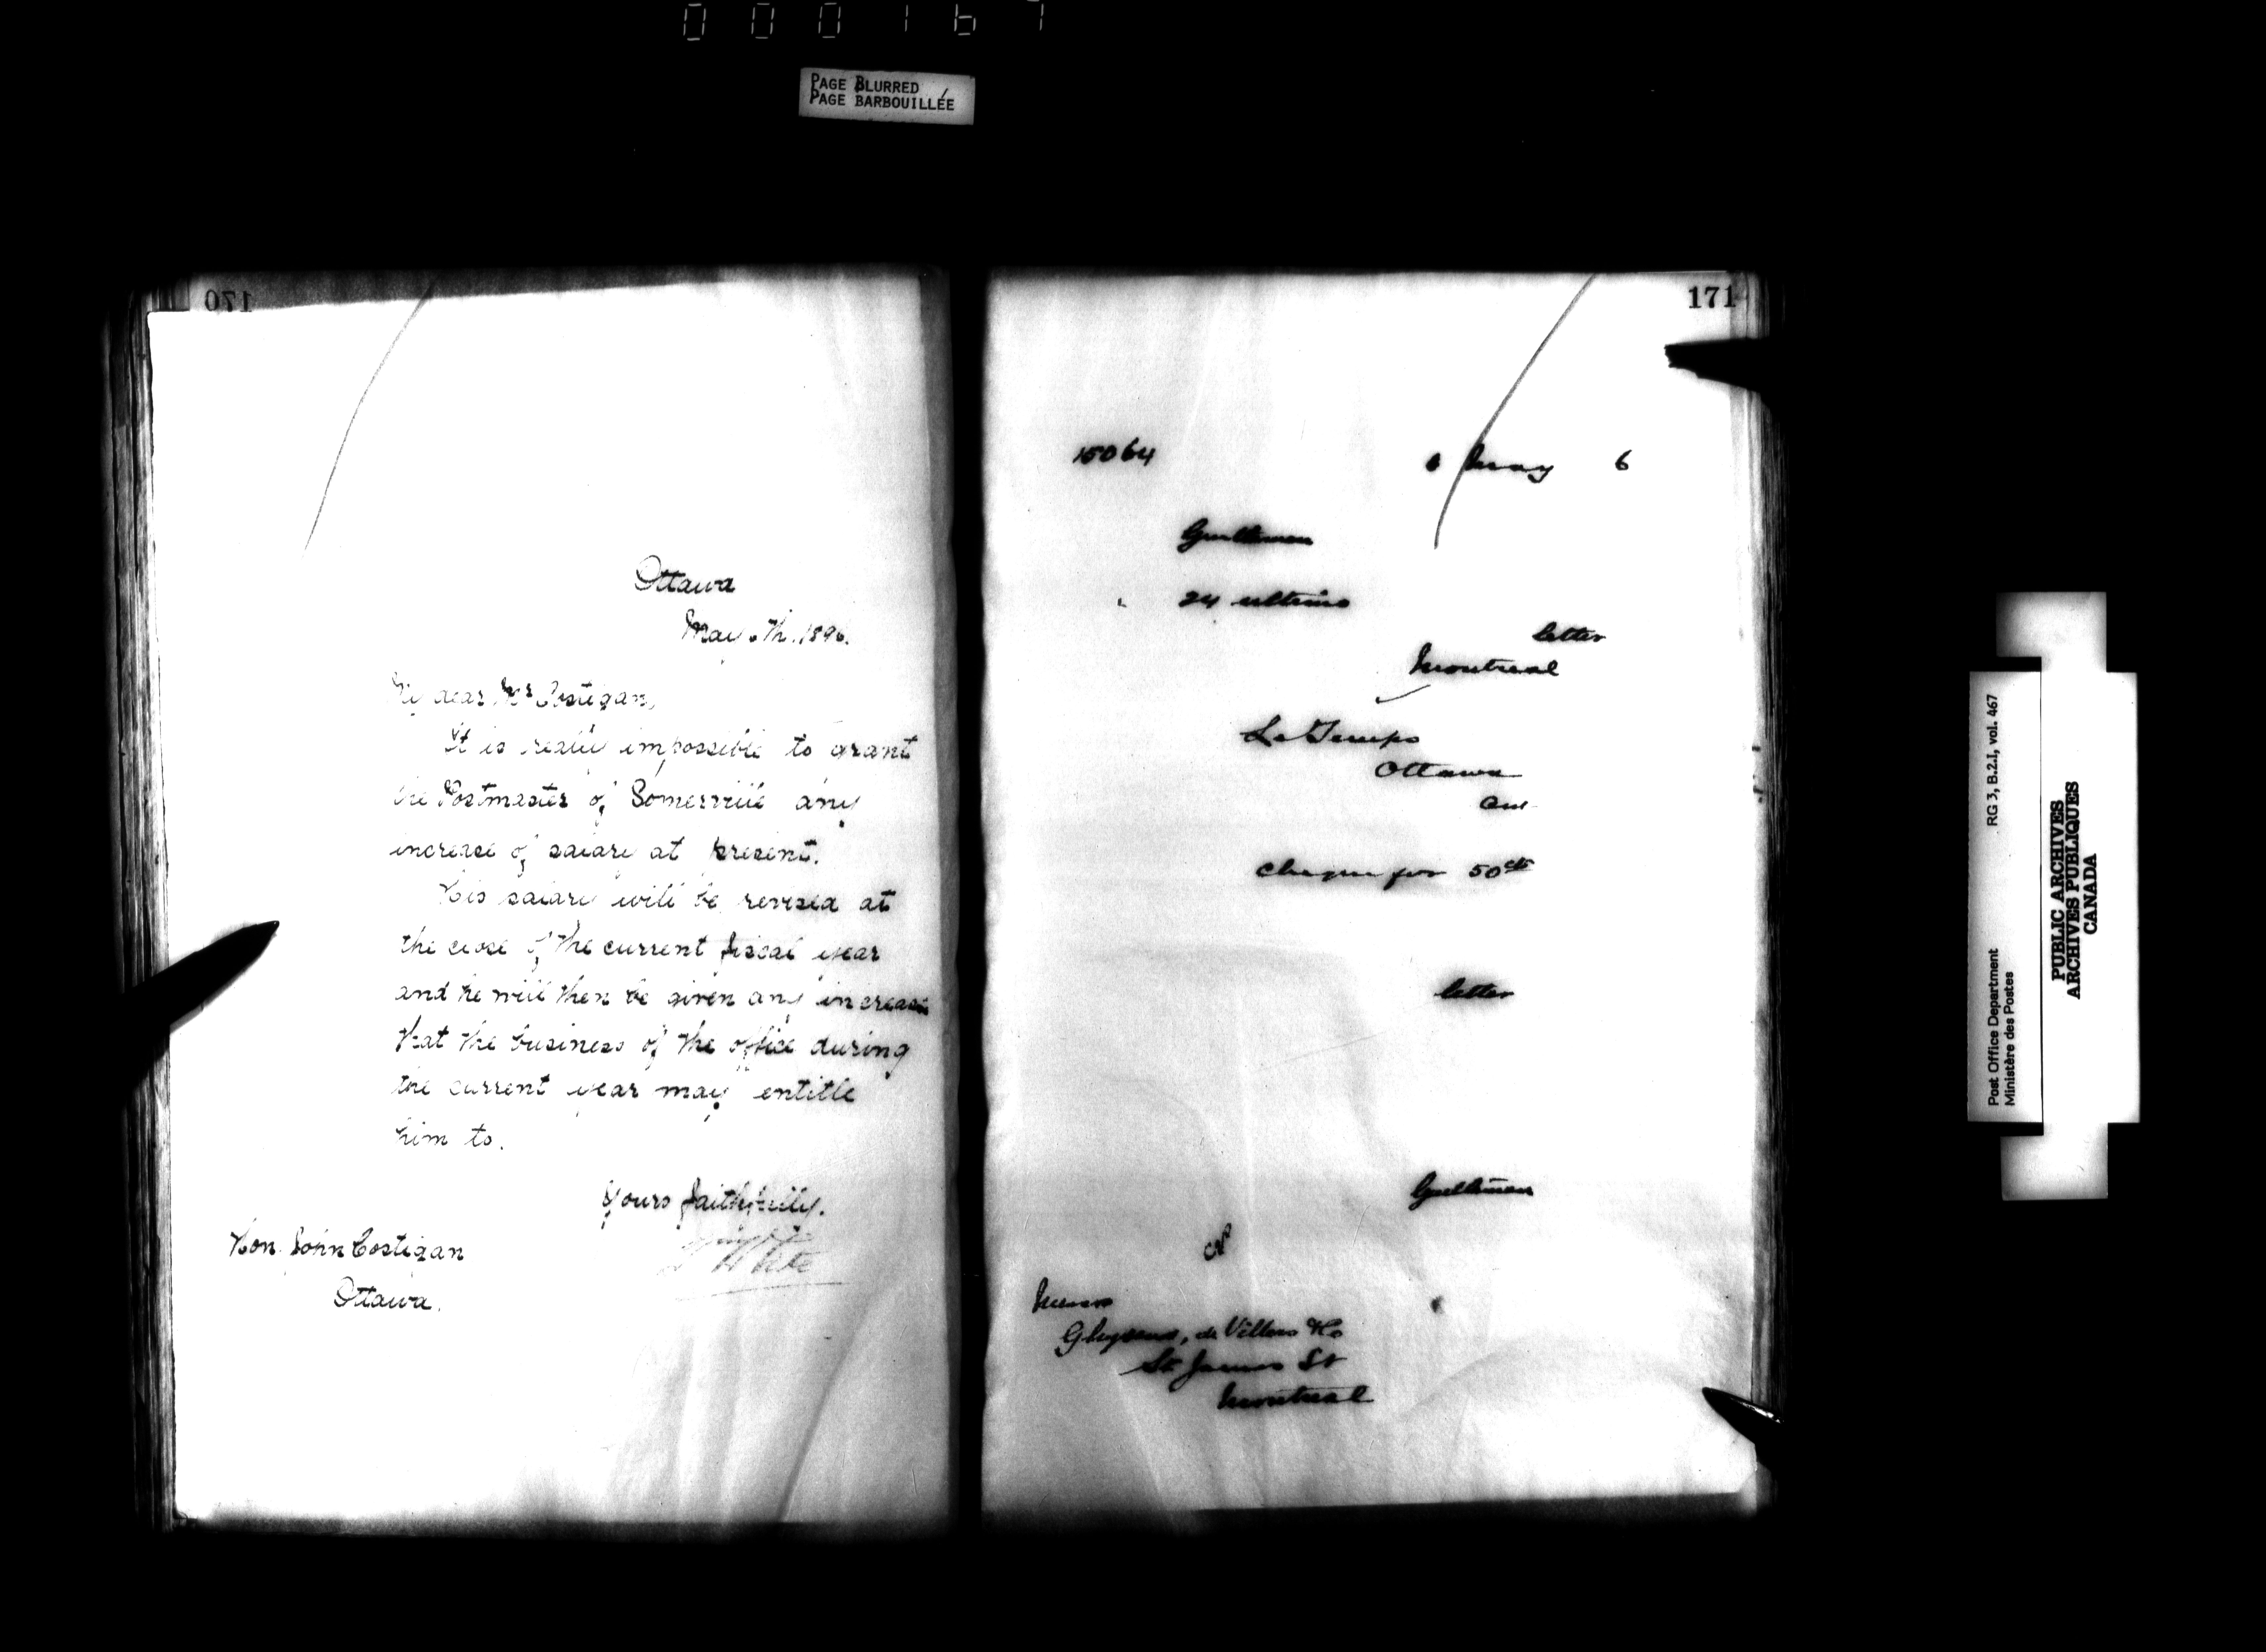 000167
PAGE BLURRED
PAGE BARBOUILLÉE
170
Ottawa
May 6th. 1896.
My dear Mr Costigan,
It is really impossible to grant
the Postmaster of Somerville any
increase of salary at present.
His salary will be revised at
the close of the current fiscal year
and he will then be given any increase
that the business of the office during
the current year may entitle
him to.
Yours faithfully.
Hon. John Costigan
Ottawa.
171
15064
6 May 6
Gentlemen
24 ultimo
letter
Montreal
Le Temps
Ottawa
Ont
cheque for 50cts
letter
Gentlemen
Messrs
de Villers &Co
St James St
Montreal
Post Office Department
Ministère des Postes
RG 3, B.2.I, vol. 467
PUBLIC ARCHIVES
ARCHIVES PUBLIQUES
CANADA